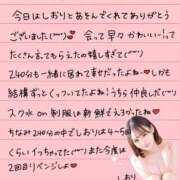 今日はしおりとあそんでくれてありがとう
ございました(^^) 会って早々かわいいー!って
たくさん言てもらえたの嬉しすぎて(^^)
240分も一緒に居れて幸せだったよねー♥しかも
結構ずっとくっついてたよね?うちら仲良しだ(^^)
スク水 on 制服は新鮮でえろかったね?
ちなみ240分の中でしおりは4〜5
くらいイっちゃてた(^^)また今度は
2回目リベンジしよ♥
しおり